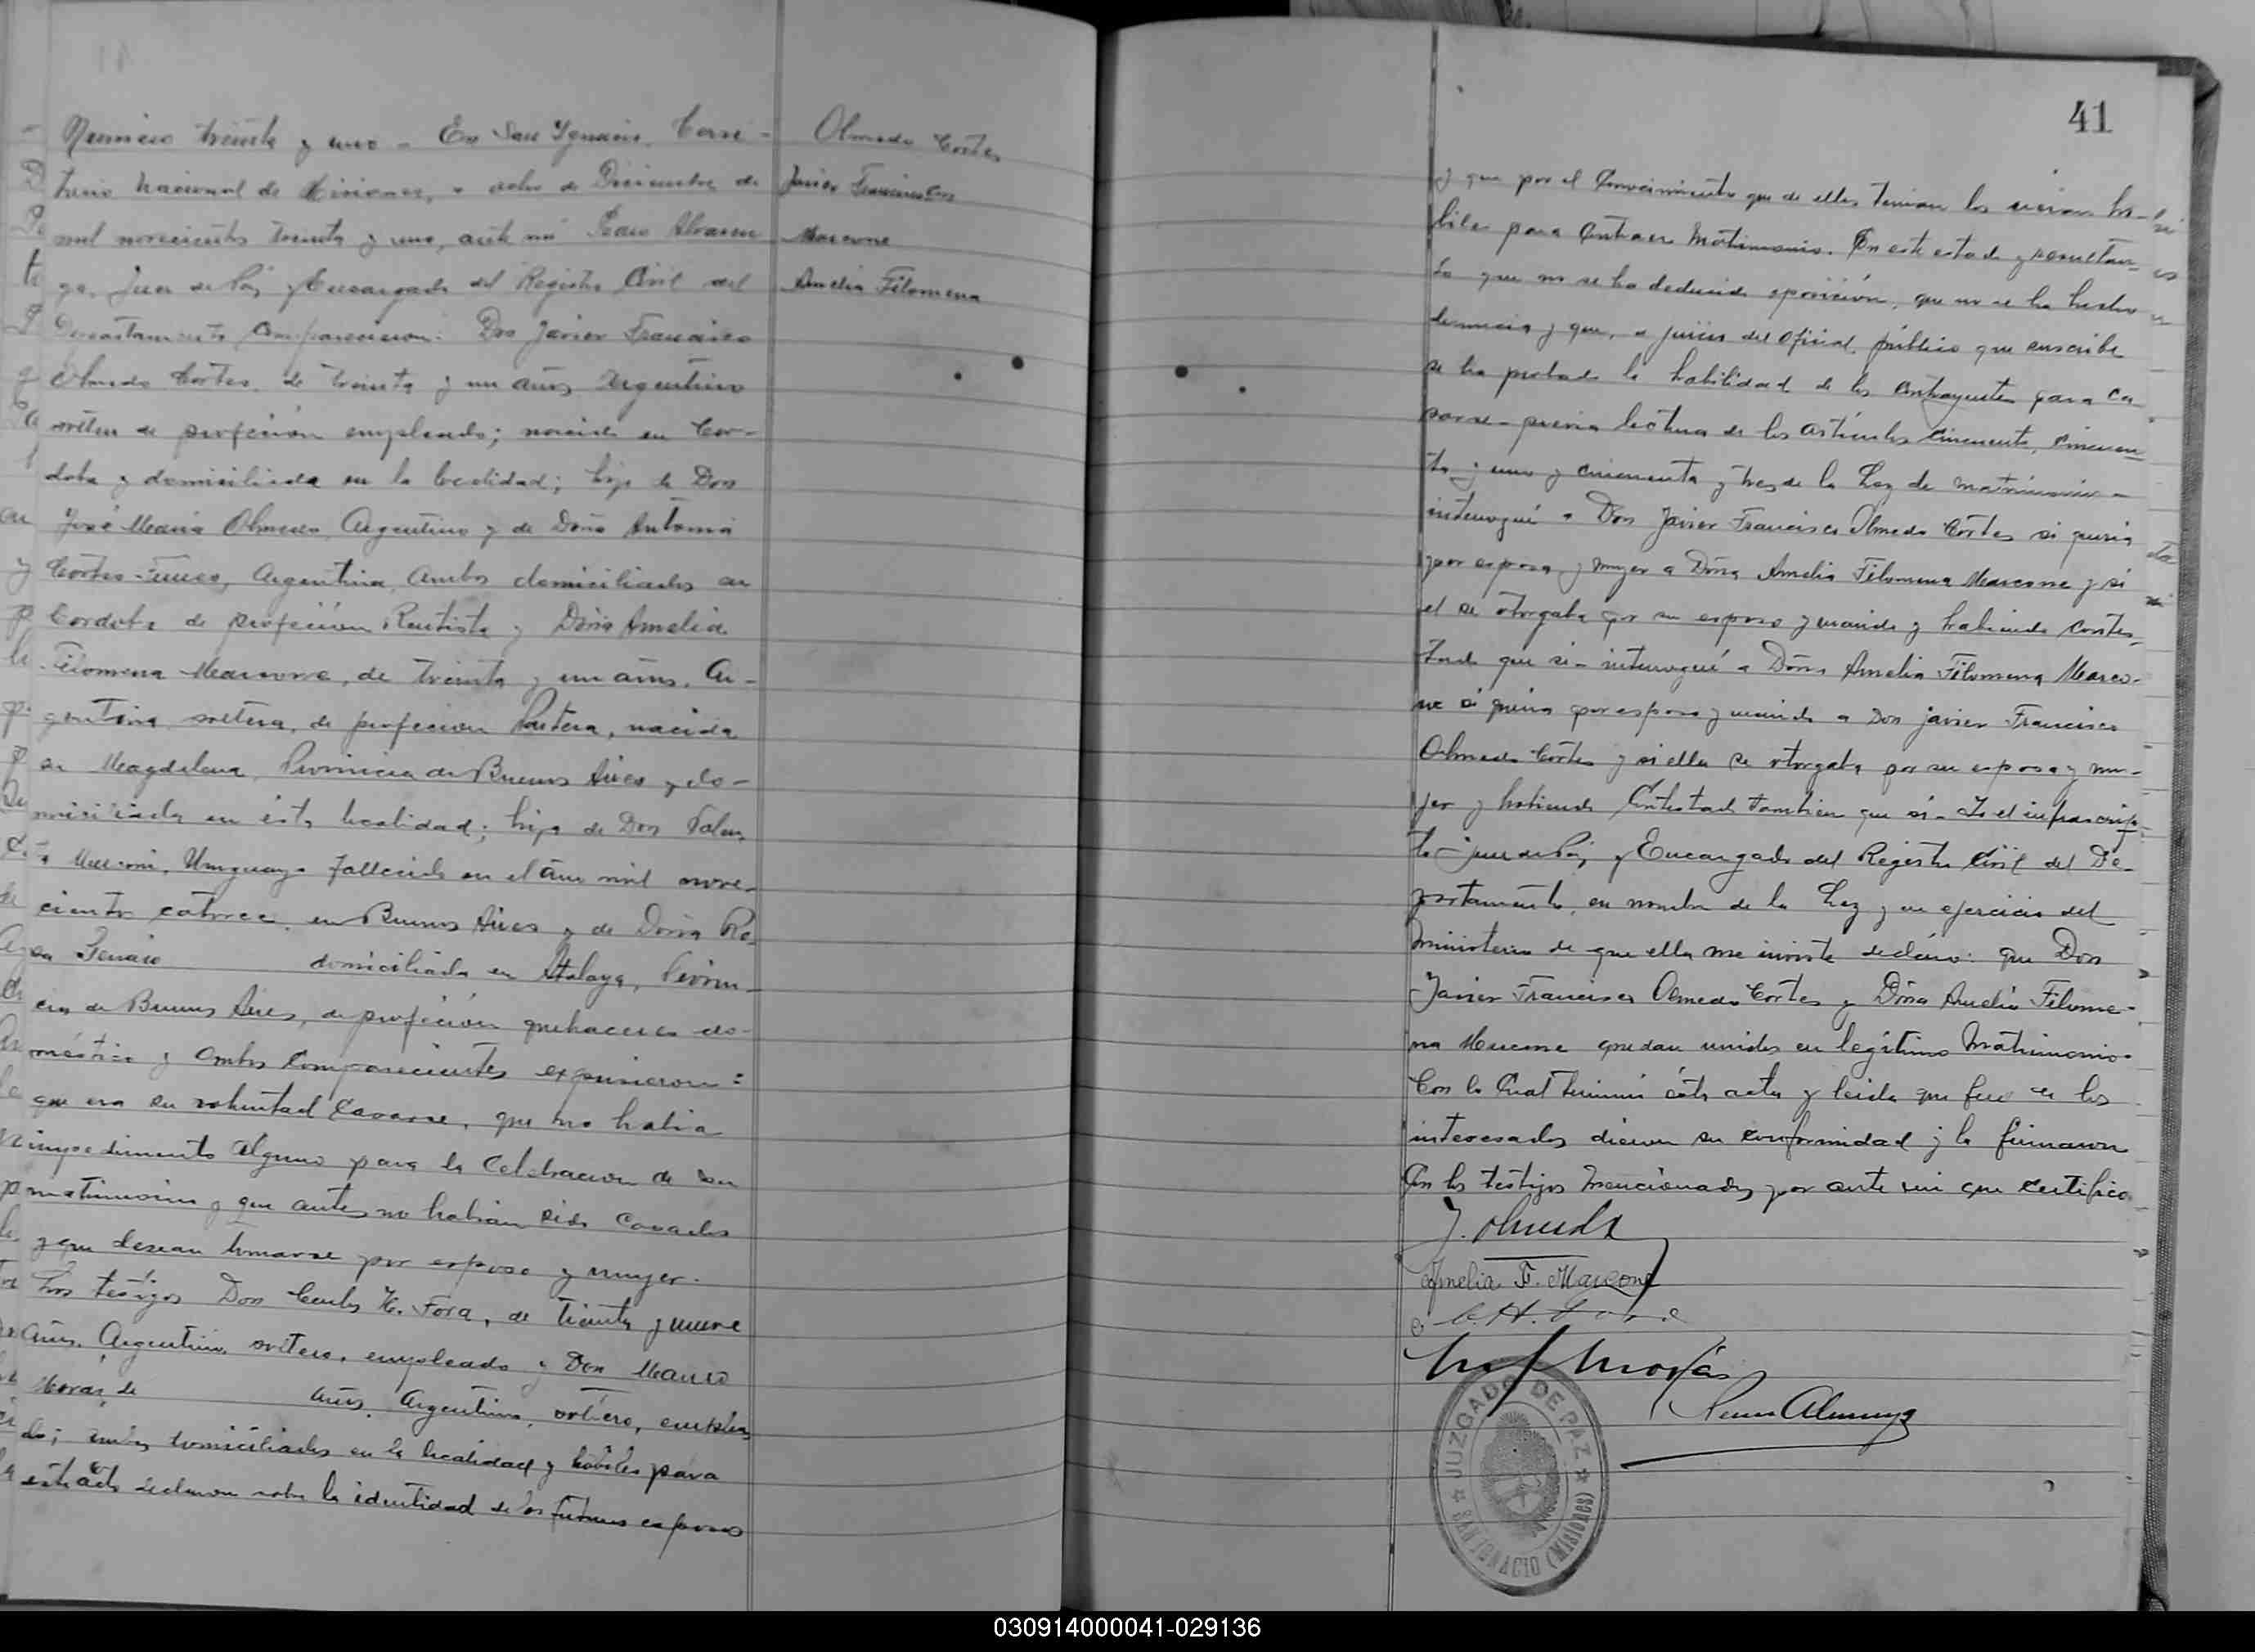 Numero treinta y uno - En San Ygnacio. Terri-
torio Nacional de Misiones, a ocho de Diciembre de
mil novecientos treinta y uno, ante mi
Juez de Paz y Encargado del Registro Civil del
Departamento Comparecieron: Don Javier Francisco
Olmedo Cortes, de treinta y un años Argentino
soltero de profecion empleado; nacido en Cor-
doba y domiciliado en la localidad; hijo de Don
José Maria Olmedo, Argentino y de Doña Antonia
Cortes Funes, Argentina, ambos domiciliados en
Cordoba de profecion Rentista y Doña Amelia
Filomena Marcone, de treinta y un años, Ar-
gentina soltera, de profecion Partera, nacida
en Magdalena, Provincia de Buenos Aires y do-
miciliada en ésta localidad; hija de Don
Uruguayo fallecido en el año mil nove-
ciento catorce, en Buenos Aires y de Doña Ro-
sa domiciliada en Atalaya, Provin-
cia de Buenos Aires, de profeción quehaceres do-
méstico y ambos comparecientes expusieron:
que era su voluntad casarse, que no habia
impedimento alguno para la Celebracion de su
matrimonio y que antes no habian sido casados
y que desean tomarse por esposo y mujer.
Los testigos Don Carlos H. Fora, de treinta y nueve
años, Argentino, soltero, empleado y Don Mauro
Moras, de años, Argentino, soltero, emplea-
do; ambos domiciliados en la localidad y habiles para
este acto declararon sobre la identidad de los futuros esposos
Olmedo Cortes
Javier Francisco con
Marcone
Amelia Filomena
41
y que por el Conocimiento que de ellos tenian los creian ha-
biles para Contraer Matrimonio. En este estado y resultan-
do que no se ha deducido oposición, que no se ha hecho
denuncia y que, a juicio del oficial público que suscribe
se ha probado la habilidad de los contrayentes para ca
sarse - previa lectura de los artículos Cincuenta, cincuen-
ta y uno y cincuenta y tres de la Ley de matrimonio -
interrogué a Don Javier Francisco Olmedo Cortes si queria
por esposa y mujer a Doña Amelia Filomena Marcone y si
el se otorgaba por su esposo y marido y habiendo contes-
tado que si - interrogué a Doña Amelia Filomena Marco-
ne si queria por esposo y marido a Don Javier Francisco
Olmedo Cortes y si ella se otorgaba por su esposa y mu-
jer y habiendo Contestado tambien que si - Yo el infrascrip-
to Juez de Paz y Encargado del Registro Civil del De-
partamento, en nombre de la Ley y en ejercicio del
ministerio de que ella me inviste declaro: que Don
Javier Francisco Olmedo Cortes y Doña Amelia Filome-
na Marcone quedan unidos en legítimo Matrimonio.
Con lo Cual terminó ésta acta y leida que fue a los
interesados dieron su conformidad y la firmaron
Con los testigos mencionados por ante mi que Certifico
J. Olmedo
Amelia F. Marcone
JUZGADO DE PAZ
SAN IGNACIO (MISIONES)
030914000041-029136